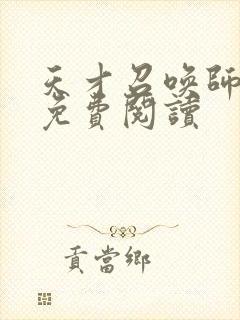 天才召喚師
免費閱讀
貢當鄉